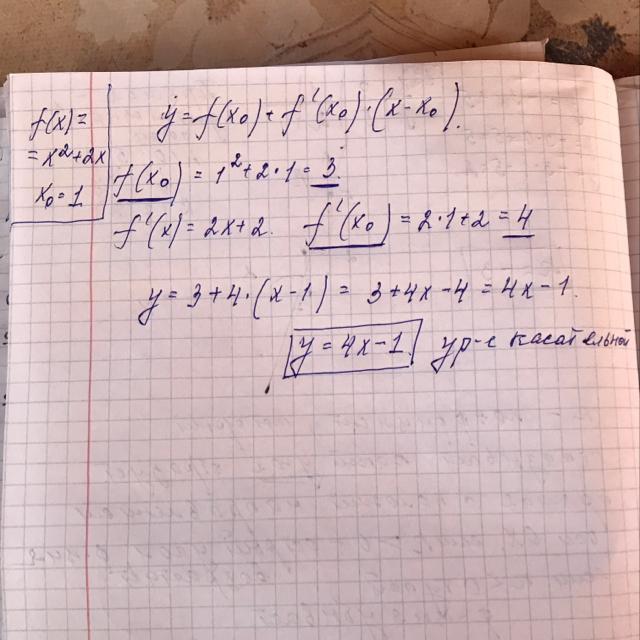 f(x)=
=x²+2x
x₀=1
y=f(x₀)+f'(x₀)·(x-x₀).
f(x₀)=1²+2·1=3.
f'(x)=2x+2. f'(x₀)=2·1+2=4
y=3+4·(x-1)=3+4x-4=4x-1.
y=4x-1. ур-е касательной